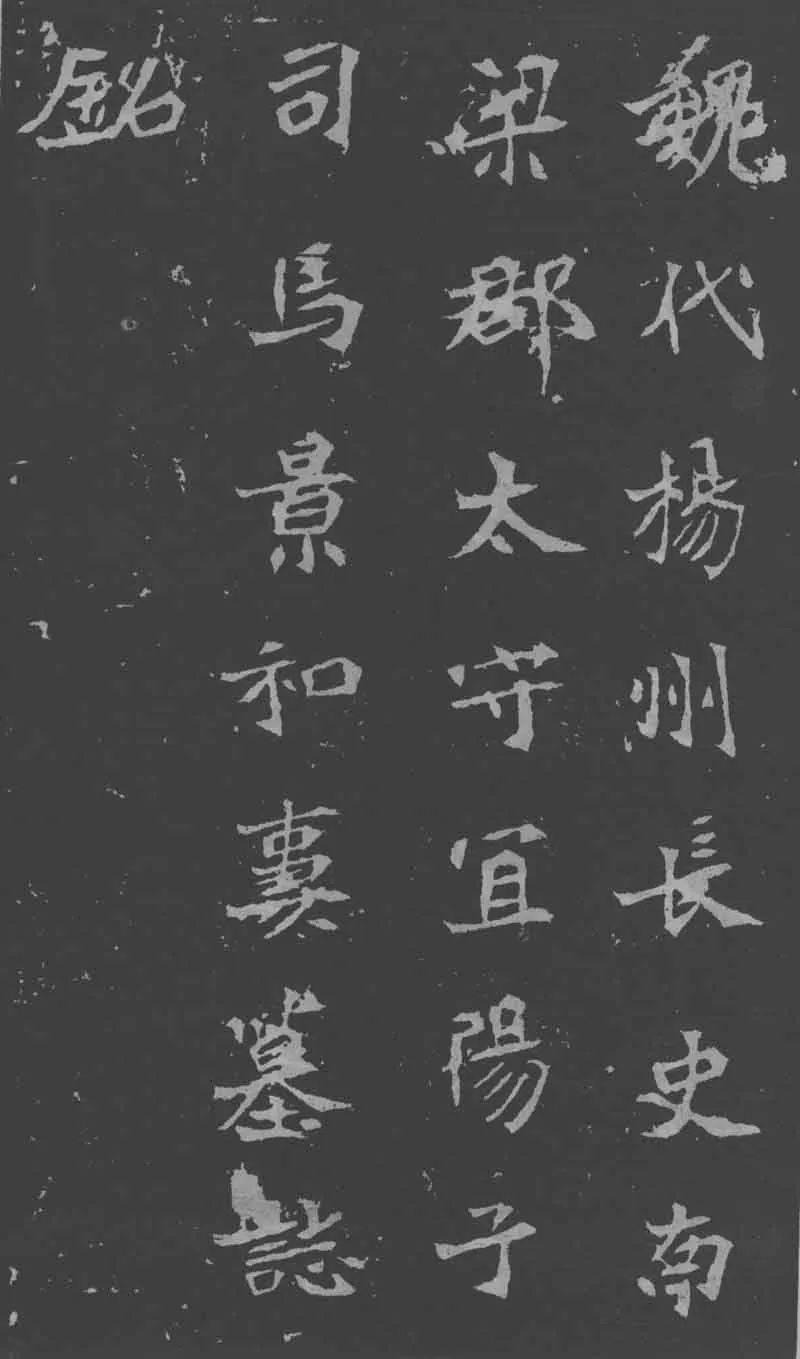 魏代楊州長史南
梁郡太守宜陽子
司馬景和妻墓誌
銘